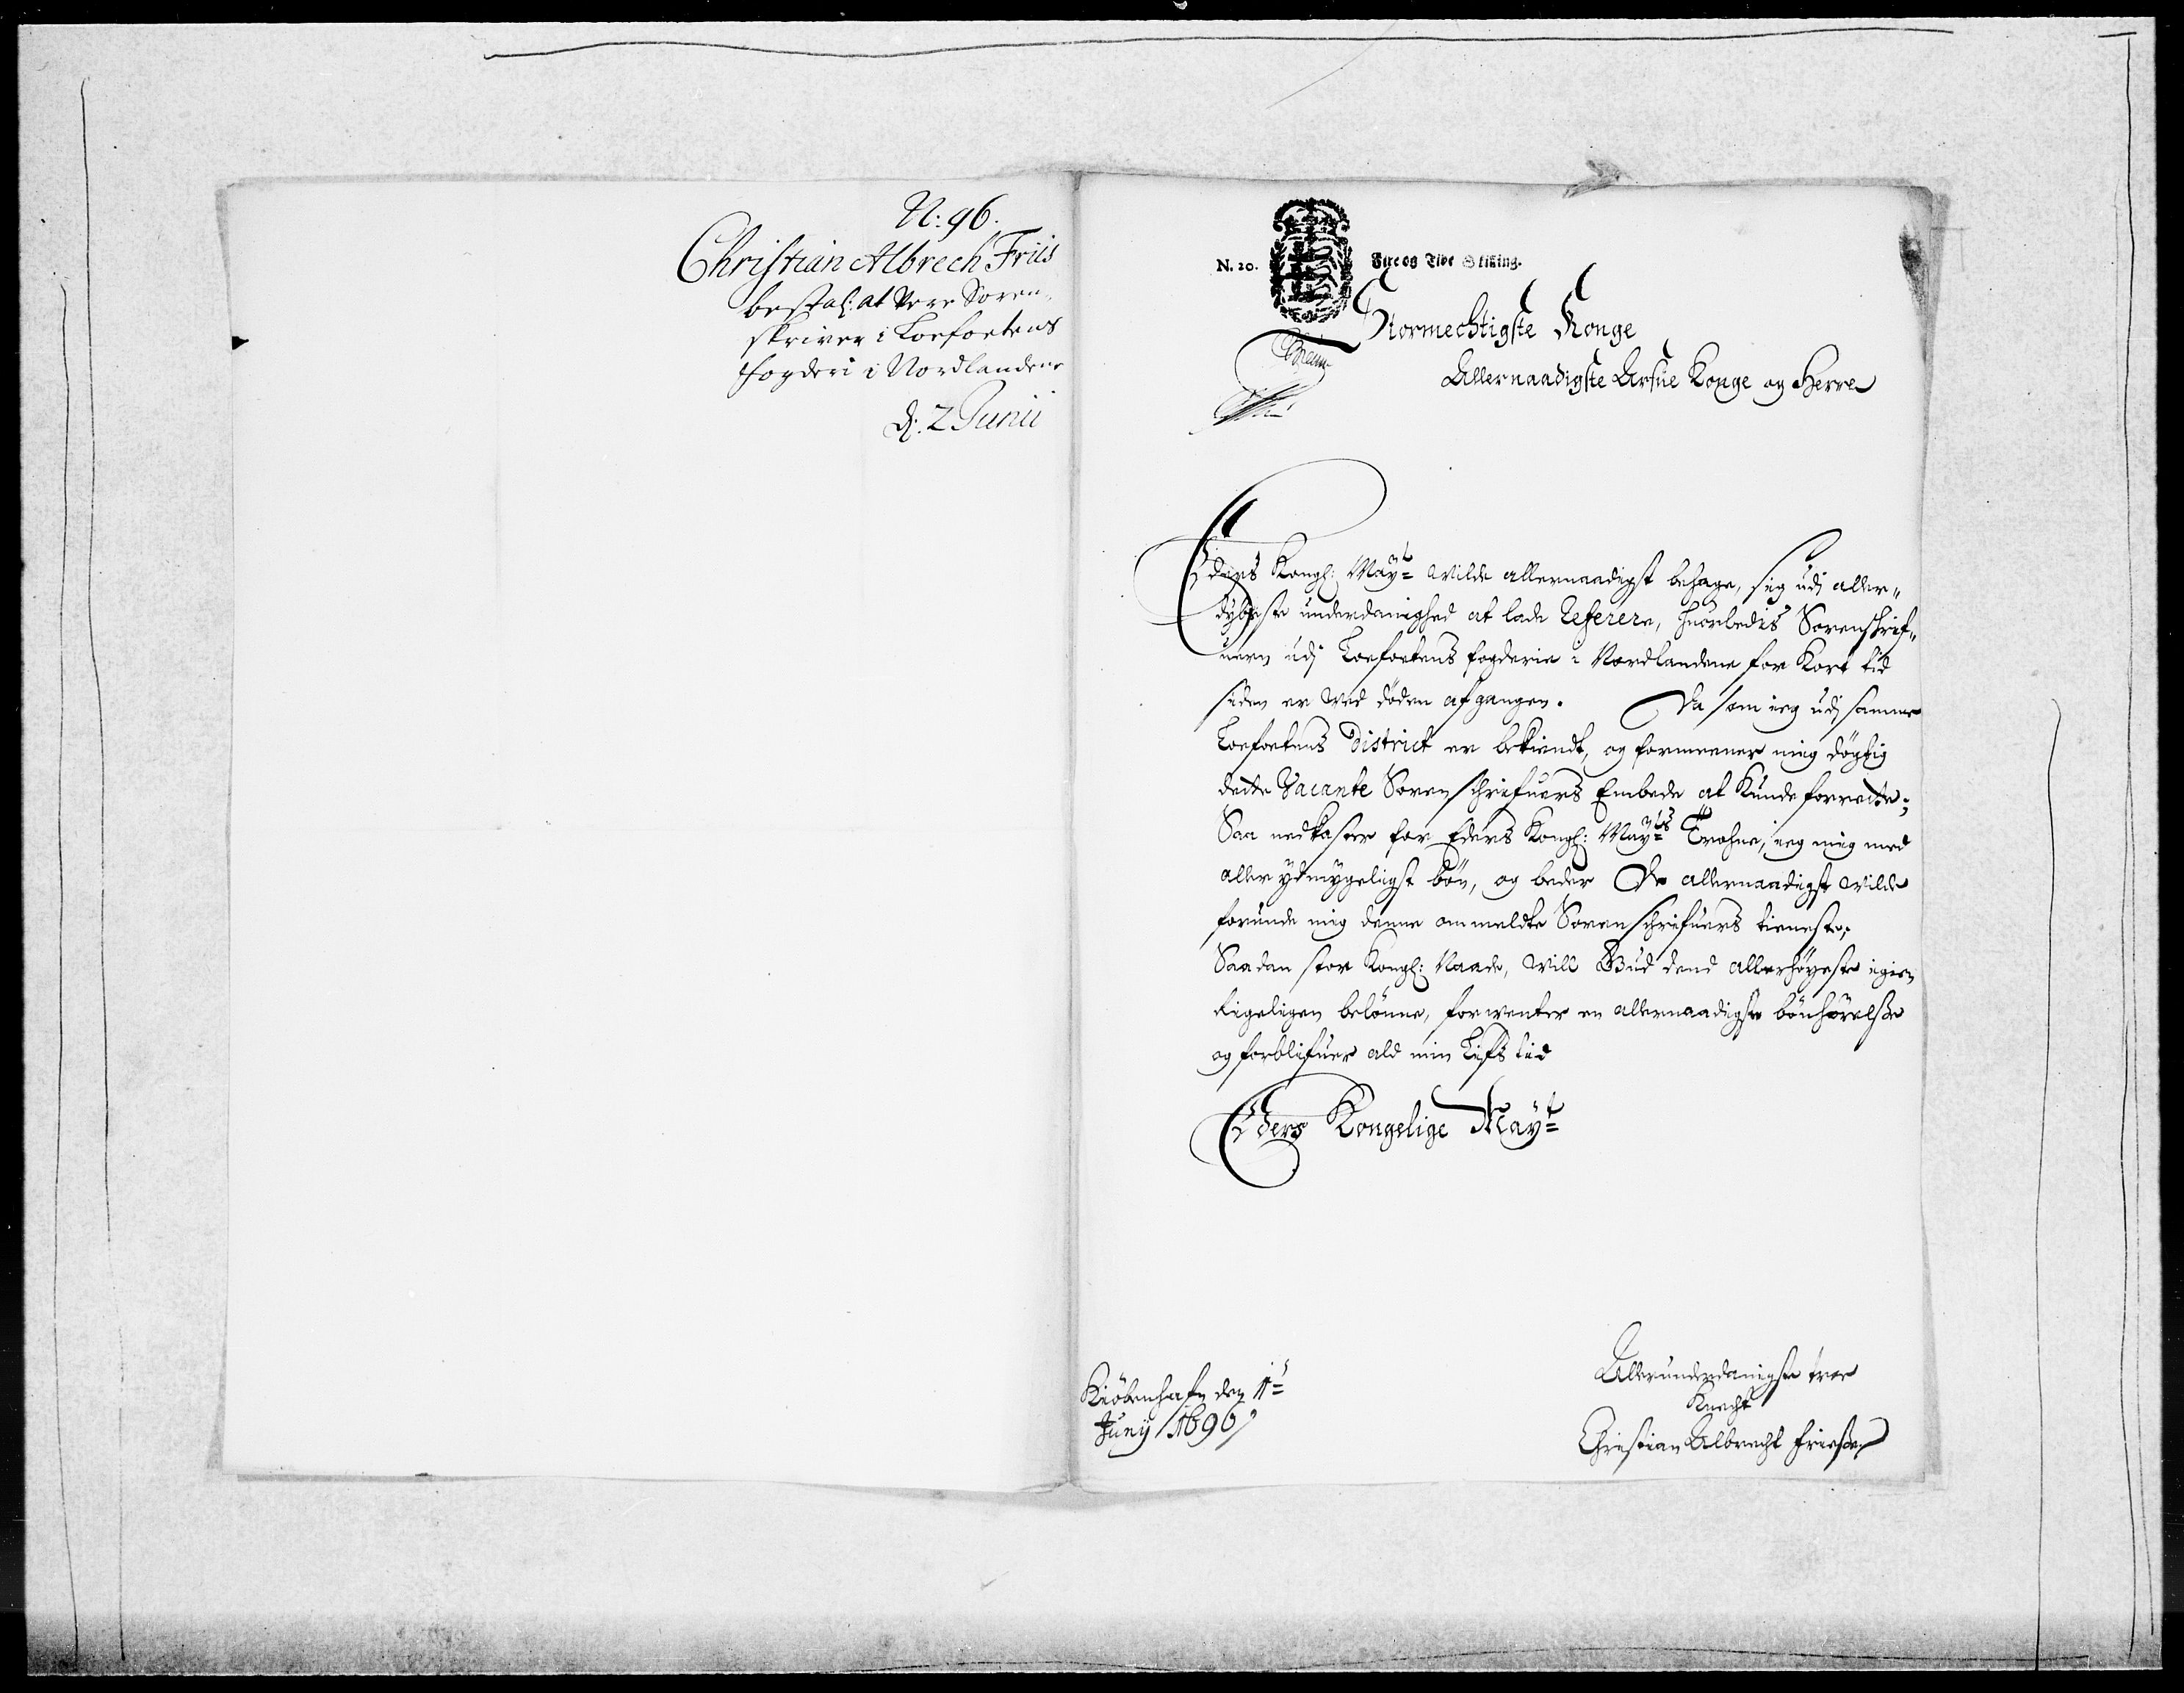 N: 96.
Christian Albrech Friis
bestal: at Vere Soren-
skriver i Loefoetens
fogderi i Nordlandene
d: 2 Junii
N. 20. Fire og Tive Skilling.
Stormechtigste Konge
Allernaadigste Arfue Konge og Herre
Eders Kongl: Mayt: wilde allernaadigst behage, sig udj aller„
dybeste underdanighed at lade Referere, huorledis Sorenschrif„
uern udj Loefoetens fogderie i Nordlandene for Kort tid
siden er ved döden afgangen. Da som ieg udj samme
Loefoetens District er bekiendt, og formeener mig dögtig
dette Vacante Sorenschrifuers Embede at Kunde forrette;
Saa nedkaster for Eders Kongl: Mayts: Trohne, ieg mig med
aller ydmygeligst bön, og beder De allernaadigst wilde
forunde mig denne ommeldte Sorenschrifuers tieneste;
Saadan stor Kongl: Naade, will Gud dend allerhöyeste igien
Rigeligen belönne, forwenter en allernaadigste bönhörelße
og forblifuer ald min Lifs tid
Eders Kongelige Mayt:
Kiöbenhafn den 1:
Junij 1696
Allerunderdanigste troe
Knecht
Christian Albrecht Frieße